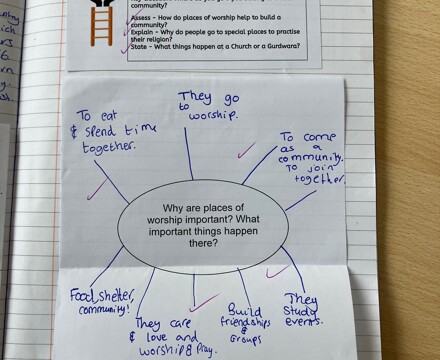 community?
Assess - How do places of worship help to build a
community?
Explain - Why do people go to special places to practise
their religion?
State - What happens at a Church or a Gurdwara?
To eat
& spend time
together.
They go
to
worship.
To come
as a
community.
To join
together.
Why are places of
worship important? What
important things happen
there?
Food, shelter,
community!
They care
& love and
worship & Pray.
Build
friendships
& Groups
They
Study
events.